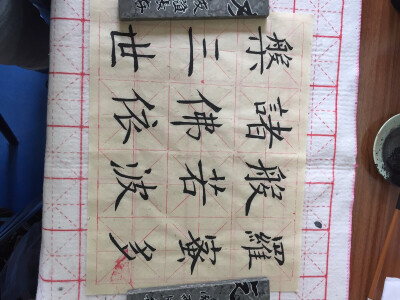 槃三世
諸佛依
般若波
羅蜜多